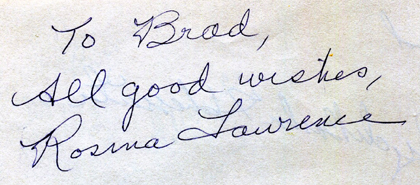 To Brad,
All good wishes,
Rosina Lawrence